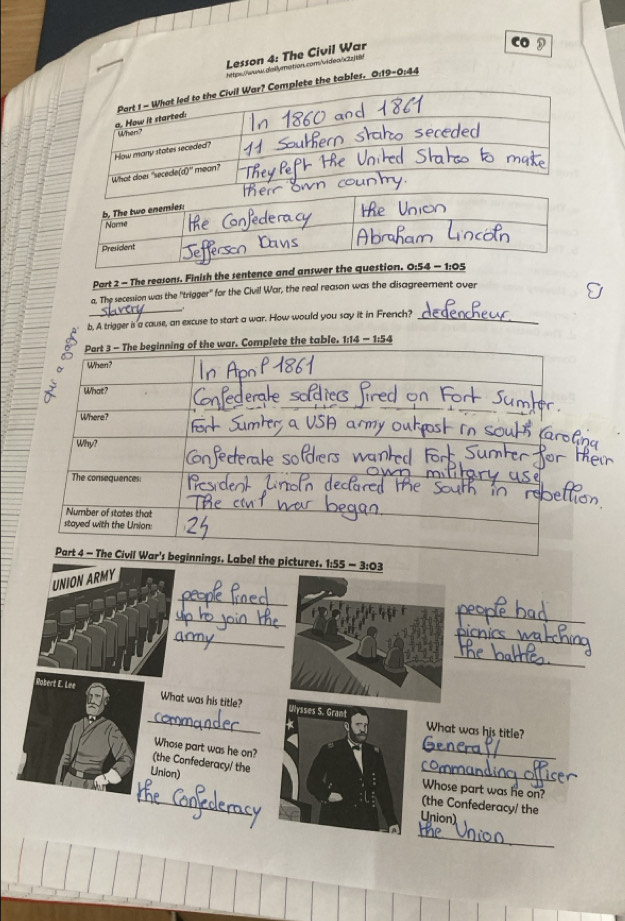 CO
Lesson 4: The Civil War
Part 1 – What led to the Civil War? Complete the tables. 0:19-0:44
a, How it started:
When? In 1860 and 1861
How many states seceded? 11 Southern states seceded
What does "secede(d)" mean? They left the United States to make
their own country.
b, The two enemies:
Name the Confederacy the Union
President Jefferson Davis Abraham Lincoln
Part 2 – The reasons. Finish the sentence and answer the question. 0:54 – 1:05
a, The secession was the "trigger" for the Civil War, the real reason was the disagreement over
slavery.
b, A trigger is a cause, an excuse to start a war. How would you say it in French? dédencheur
Part 3 – The beginning of the war. Complete the table. 1:14 – 1:54
When? In April 1861
What? Confederate soldiers fired on Fort Sumter.
Where? Fort Sumter, a USA army outpost in south Carolina
Why? Confederate soldiers wanted Fort Sumter for their
own military use
The consequences: President Lincoln declared the South in rebellion.
The civil war began.
Number of states that
stayed with the Union: 24
Part 4 – The Civil War's beginnings. Label the pictures. 1:55 – 3:03
UNION ARMY
people lined
up to join the
army
people had
picnics watching
the battles.
Robert E. Lee
What was his title?
commander
Whose part was he on?
(the Confederacy/ the
Union)
the Confederacy
Ulysses S. Grant
What was his title?
General /
commanding officer
Whose part was he on?
(the Confederacy/ the
Union)
the Union